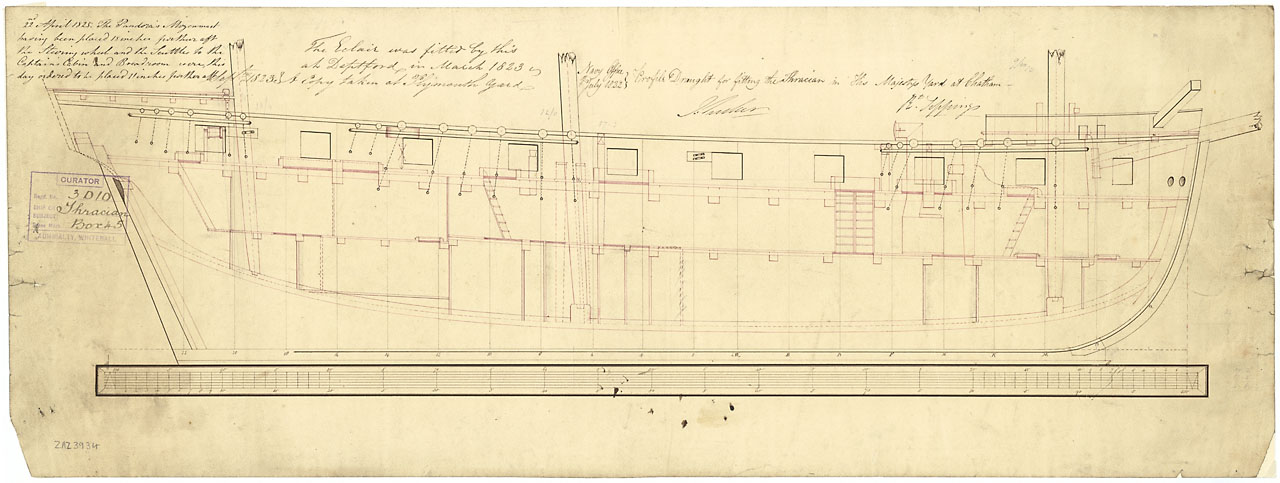 22nd April 1825. The Pandora's Mizenmast
having been placed 18 inches further aft
the Steering wheel and the Scuttles to the
Captain's Cabin and Breadroom were, this
day ordered to be placed 11 inches further aft
The Eclair was fitted by this
at Deptford, in March 1823 &
A Copy taken at Plymouth Yard
1823
Navy Office
July 1822
Profile Draught for fitting the Thracian in His Majestys Yard at Chatham
Rt. Seppings
CURATOR
3 D 10
Thracian
Box 45
ADMIRALTY, WHITEHALL
ZAZ3934